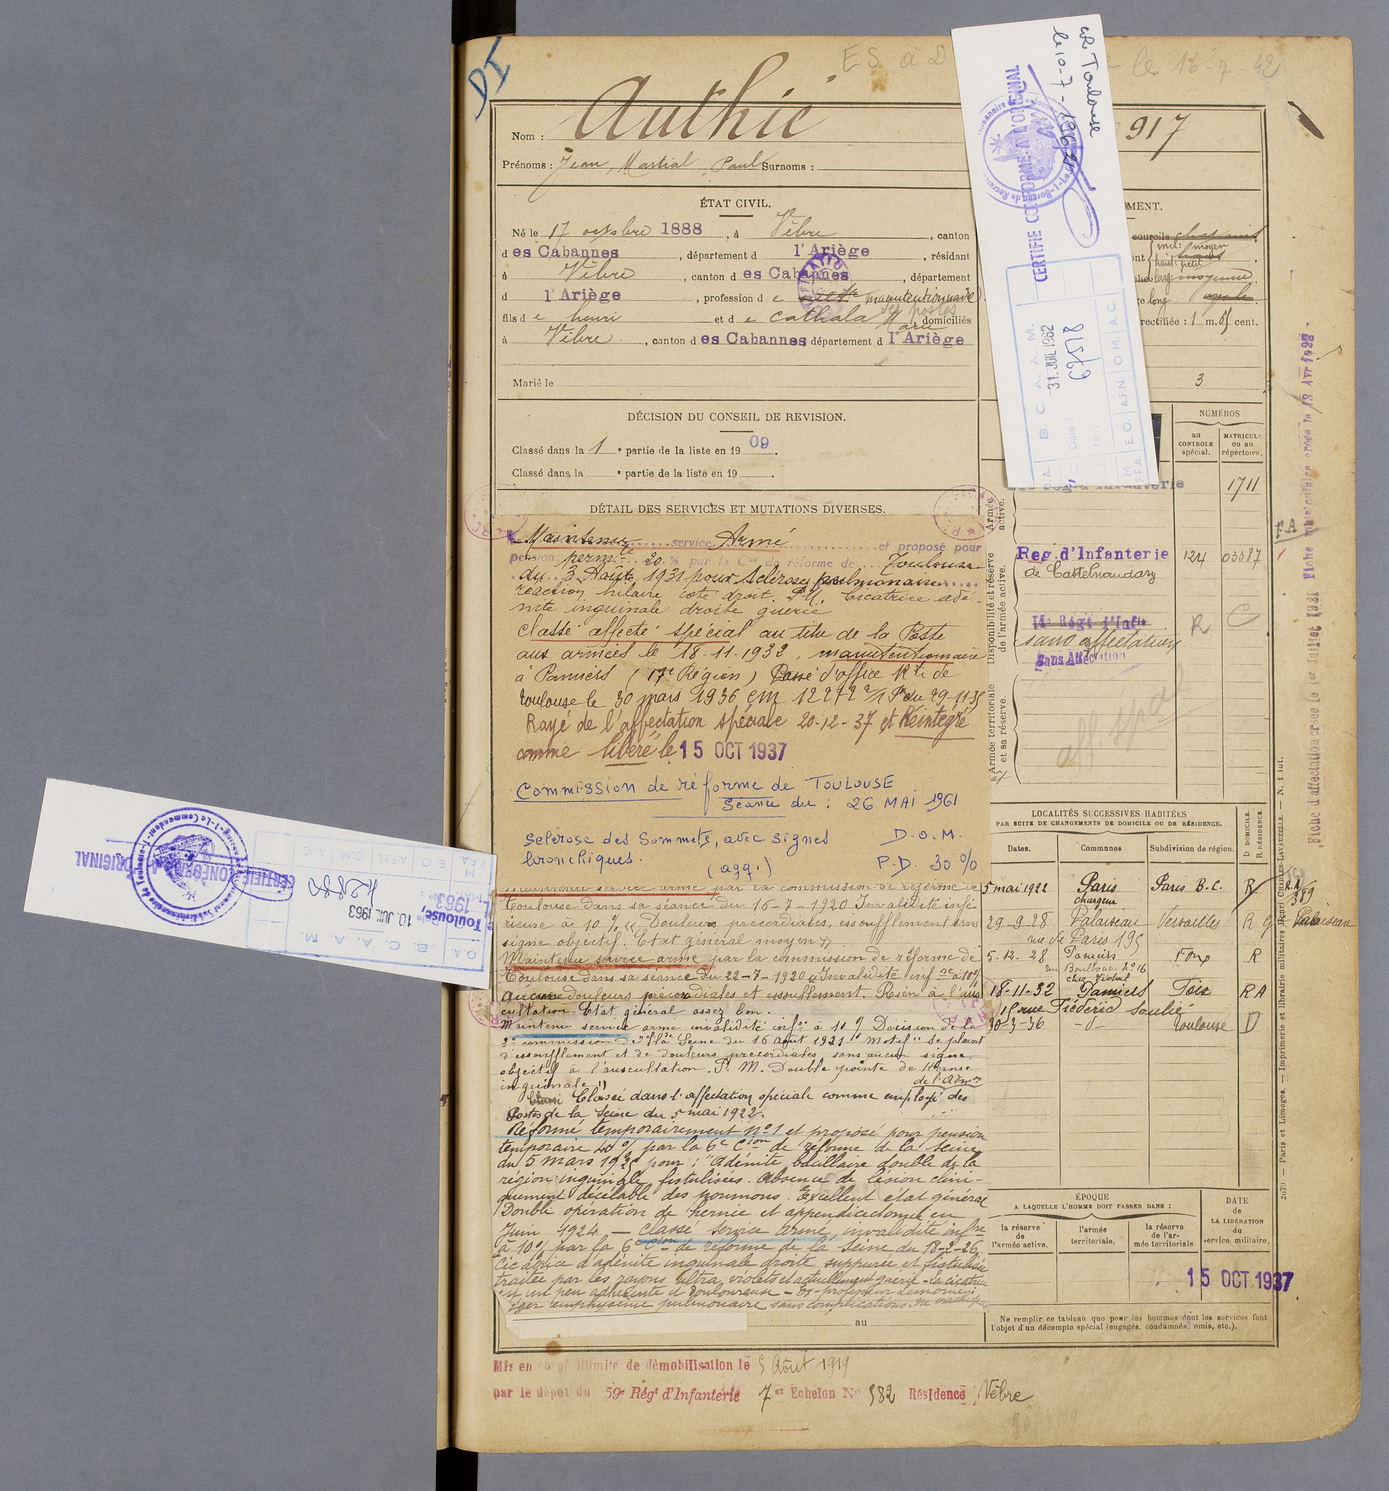 DI
ES à D
le 16-7-42
Nom : Authié
917
Prénoms : Jean, Martial, Paul Surnoms :
ÉTAT CIVIL.
Né le 17 octobre 1888, à Vèbre, canton
d es Cabannes, département d l'Ariège, résidant
à Vèbre, canton d es Cabannes, département
d l'Ariège, profession d e manutentionnaire
des postes
fils d e henri et d e Cathala Marie domiciliés
à Vèbre, canton d es Cabannes département d l'Ariège
Marié le
DÉCISION DU CONSEIL DE REVISION.
Classé dans la 1 e partie de la liste en 19 09.
Classé dans la e partie de la liste en 19 .
DÉTAIL DES SERVICES ET MUTATIONS DIVERSES.
Maintenu service Armé et proposé pour
pension permte 20 % par la Con de réforme de Toulouse
du 3 Août 1931 pour Sclérose pulmonaire
réaction hilaire côté droit. P.M. Cicatrice adé-
nite inguinale droite guérie
Classé affecté spécial au titre de la Poste
aux armées le 18-11-1932, manutentionnaire
à Pamiers (17e Région) Passé d'office Rt de
Toulouse le 30 mars 1936 CM 12272 2/1 Pr du 29-11-35
Rayé de l'affectation spéciale 20-12-37 et Réintégré
comme libéré le 15 OCT 1937
Commission de réforme de TOULOUSE
Séance du : 26 MAI 1961
Sclérose des Sommets, avec signes D.O.M.
bronchiques.
(agg.) P.D. 30 %
Maintenu service armé par la commission de réforme de
Toulouse dans sa séance du 16-7-1920 Invalidité infé
rieure à 10 % « Douleurs précordiales, essoufflement sans
signe objectif. Etat général moyen »
Maintenu service armé par la commission de réforme de
Toulouse dans sa séance du 22-7-1920 Invalidité infre à 10%
Aucune douleurs précordiales et essoufflement. Rien à l'aus
cultation. Etat général assez bon.
Maintenu service armé invalidité infre à 10 % Décision de la
2e commission de la Seine du 16 Août 1921. Motif "se plaint
d'essoufflement et de douleurs précordiales, sans aucun signe
objectif à l'auscultation. P. M. Double pointe de Hernie
inguinale")
de l'Admon
Classé dans l'affectation spéciale comme employé des
Postes de la Seine du 5 mai 1922.
Réformé temporairement n°1 et proposé pour pension
temporaire 40 % par la 6e Cion de réforme de la Seine
du 5 mars 1925 pour : "Adénite bacillaire double de la
région inguinale fistulisée. Absence de lésion clini-
quement décelable des poumons. Excellent état général
Double opération de hernie et appendicectomie en
Juin 1924 — Classé service armé, invalidité infre
à 10% par la 6e Cion de réforme de la Seine du 18-2-26
Cicatrice d'adénite inguinale droite suppurée et fistulisée
traitée par les rayons ultra violets et actuellement guérie - la cicatrice
est une peu adhérente et douloureuse - Dr professeur Lemoine :
léger emphysème pulmonaire sans complications.
au
Mis en congé illimité de démobilisation le 5 Août 1919
par le dépôt du 59e Régt d'Infanterie 7e Echelon N° 532 Résidence Vèbre
CR. Toulouse
le 10-7-1962
CERTIFIE CONFORME A L'ORIGINAL
B. C. A. A. M.
31. JUIL 1962
Date :
E.O. A.F.N. O.M. A.C.
sourcils
moyen
moyenne
rectifiée : 1 m. cent.
3
NUMÉROS
au CONTROLE spécial.
MATRICULE ou au répertoire.
Armée active.
1711
Disponibilité et réserve de l'armée active.
Reg. d'Infanterie 124 03387
de Castelnaudary
sans affectation R C
Sans Affectation
Armée territoriale et sa réserve.
aff. spal
LOCALITÉS SUCCESSIVES HABITÉES
PAR SUITE DE CHANGEMENTS DE DOMICILE OU DE RÉSIDENCE.
Dates. Communes Subdivision de région. D DOMICILE. R RÉSIDENCE
5 mai 1922 Paris Paris B.C. R
29-9-28 Palaiseau Versailles R
rue de Paris 195
5-12-28 Pamiers Foix R
18-11-32 Pamiers Foix RA
15 rue Frédéric Soulié
30-3-36 -d- Toulouse D
ÉPOQUE
A LAQUELLE L'HOMME DOIT PASSER DANS :
la réserve de l'armée active.
l'armée territoriale.
la réserve de l'armée territoriale.
DATE DE LA LIBÉRATION du service militaire.
15 OCT 1937
Ne remplir ce tableau que pour les hommes dont les services font
l'objet d'un décompte spécial (engagés, condamnés, omis, etc.).
Fiche d'affectation créée le 1er Juillet 1931
Fiche matriculaire créée le
Paris et Limoges. — Imprimerie et librairie militaires Henri Charles-Lavauzelle. — N. 1 int.
CERTIFIE CONFORME
ORIGINAL
Toulouse
10 JUIL 1963
B. C. A. A. M.